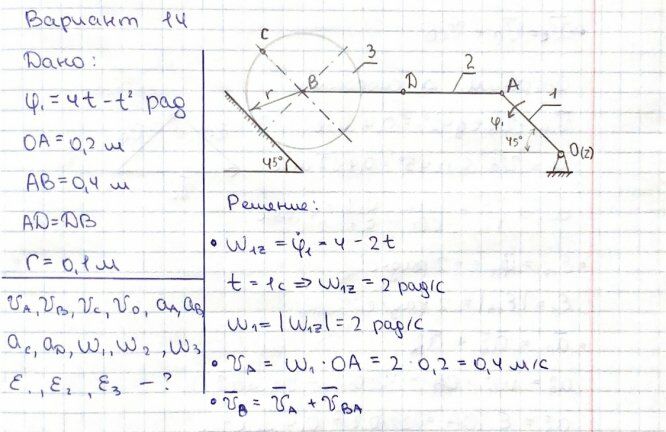 Вариант 14
Дано:
φ₁ = 4t - t² рад
OA = 0,2 м
AB = 0,4 м
AD = DB
r = 0,1 м
v_A, v_B, v_C, v_D, a_A, a_B
a_C, a_D, ω₁, ω₂, ω₃
ε₁, ε₂, ε₃ - ?
C
3
2
B
D
A
1
r
φ₁
45°
O(z)
45°
Решение:
• ω₁z = φ̇₁ = 4 - 2t
t = 1c ⇒ ω₁z = 2 рад/с
ω₁ = |ω₁z| = 2 рад/с
• v_A = ω₁ · OA = 2 · 0,2 = 0,4 м/с
• v̄_B = v̄_A + v̄_BA